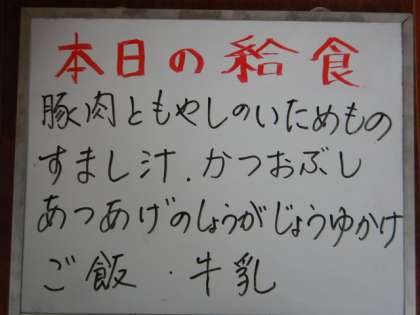 本日の給食
豚肉ともやしのいためもの
すまし汁.かつおぶし
あつあげのしょうがじょうゆかけ
ご飯・牛乳